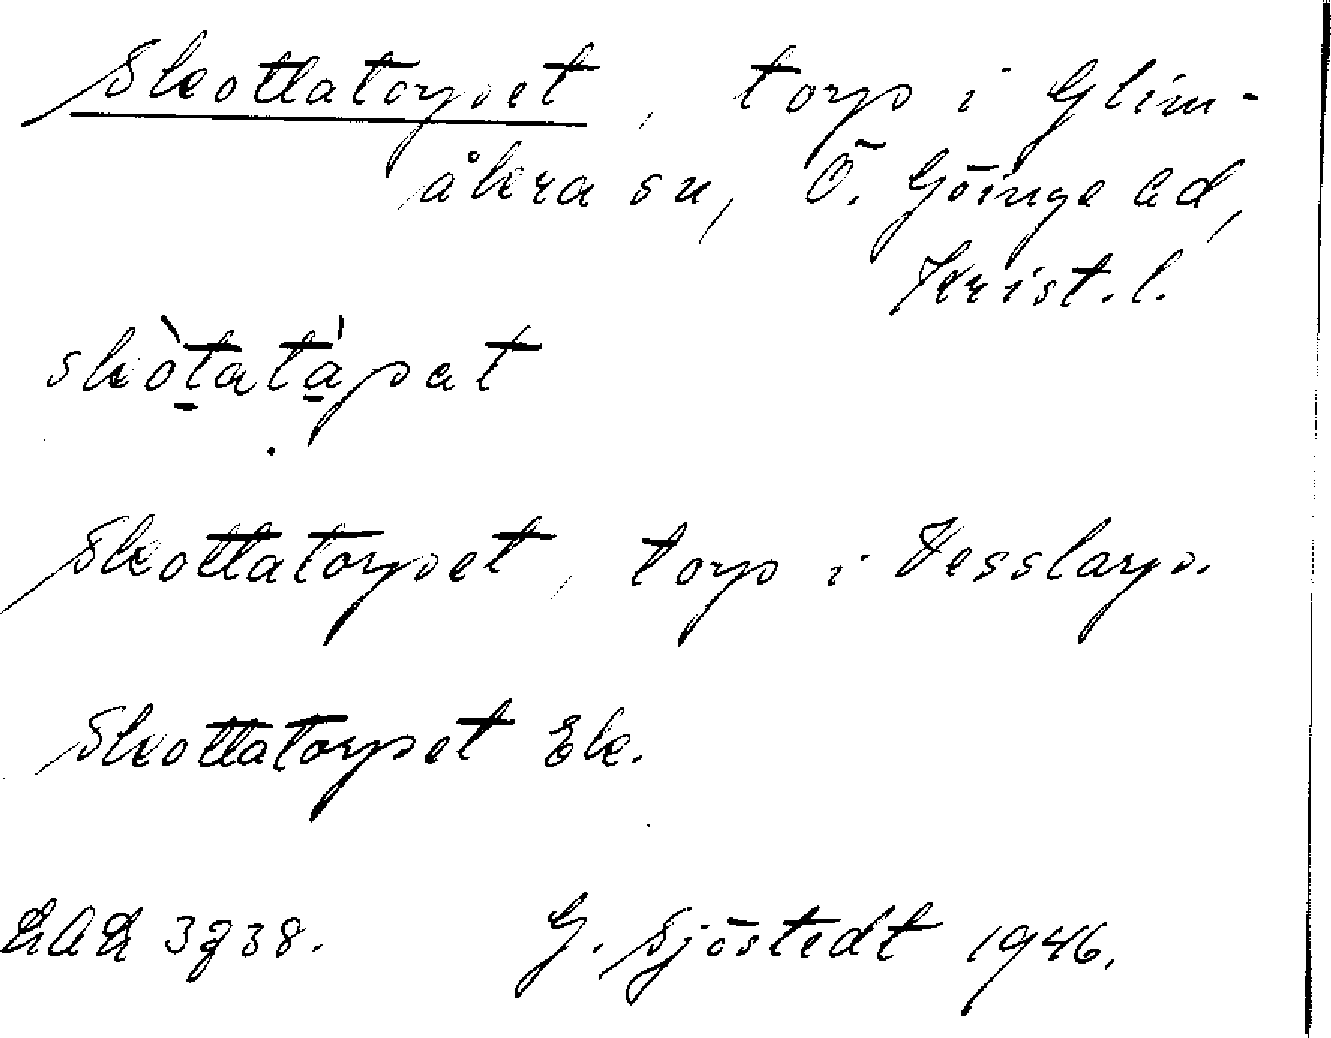 Skottatorpet, torp i Glim-
åkra sn, Ö. Göinge hd,
Krist. l.
skòtatápat
Skottatorpet, torp i Vesslarp.
Skottatorpet Ek.
LAL 3938. G. Sjöstedt 1946.